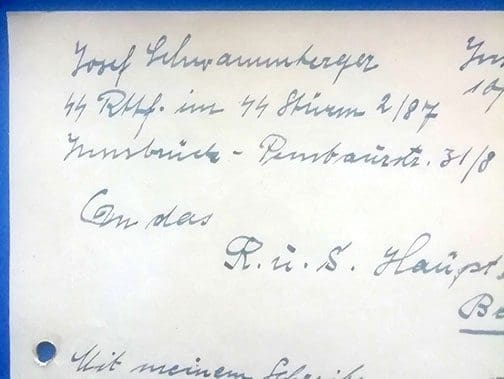 Josef Schwammberger Inn
SS Rttf. im SS Sturm 2/87 10
Innsbruck - Pembaurstr. 31/8
An das
R. u. S. Haupt
Be
Mit meinem Schreibe